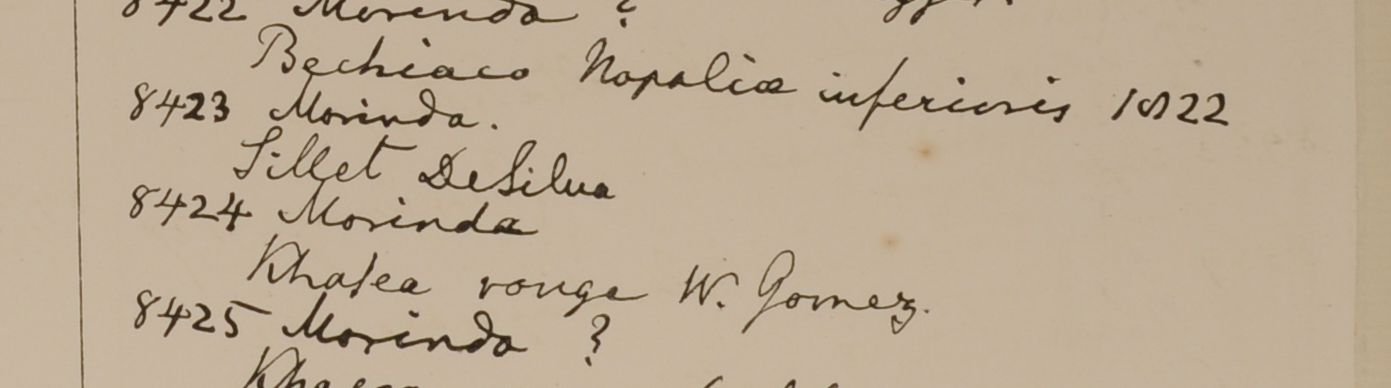 8422 Morinda ?
Bechiaco Napaliæ inferioris 1822
8423 Morinda.
Sillet DeSilva
8424 Morinda
Khasea rouge W. Gomez.
8425 Morinda ?